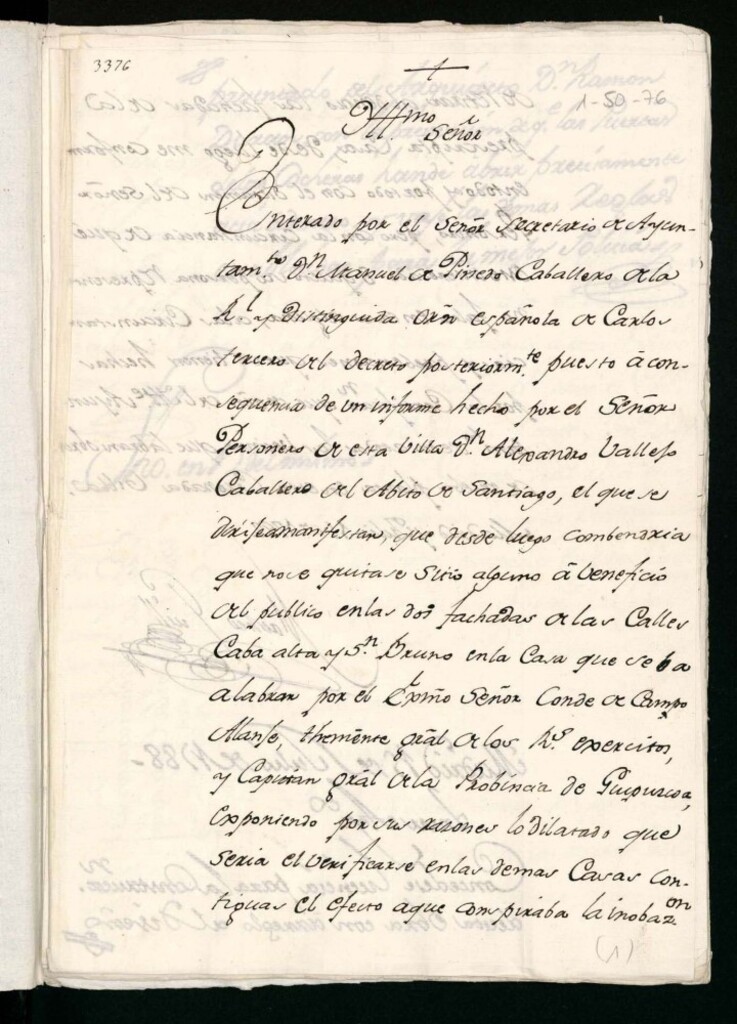 3376
1-50-76
Yllmo Señor
Enterado por el Señor Secretario de Ayun-
tam.to D.n Manuel de Pinedo Caballero de la
R.l y Distinguida Orñ española de Carlos
tercero del decreto posteriorm.te puesto à con-
sequencia de un informe hecho por el Señor
Personero de esta Villa D.n Alexandro Vallejo
Caballero del Abito de Santiago, el que se
dirije a manifestar, que desde luego combendria
que no se quitase sitio alguno à beneficio
del publico en las dos fachadas de las Calles
Caba alta y S.n Bruno en la Casa que se ba
a labrar por el Exmo Señor Conde de Campo
Alanje, theniente grãl de los R.s exercitos,
y Capitan grãl de la Probincia de Guipuzcoa,
exponiendo por sus razones lo dilatado que
seria el verificarse en las demas Casas con-
tiguas el efecto a que conspiraba la inobaz.on
(1)